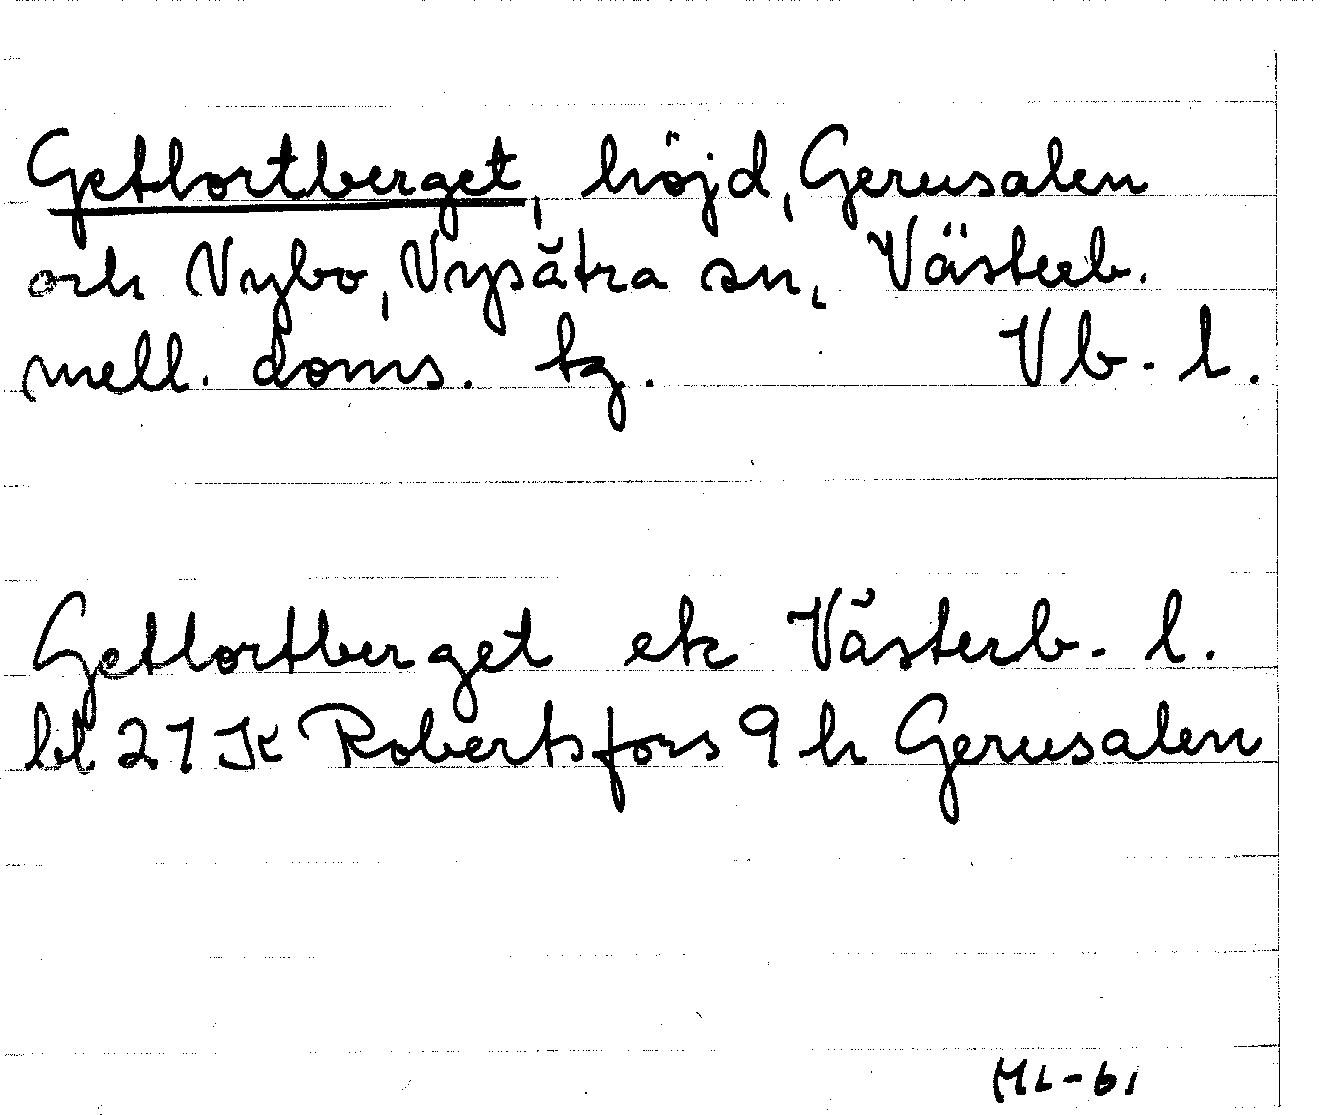 Getlortberget, höjd, Gerusalen
och Nybo, Nysätra sn, Västerb.
mell. doms. tg. Vb. l.
Getlortberget ek Västerb. l.
bl 21 K Robertsfors 9 h Gerusalen
ML-61